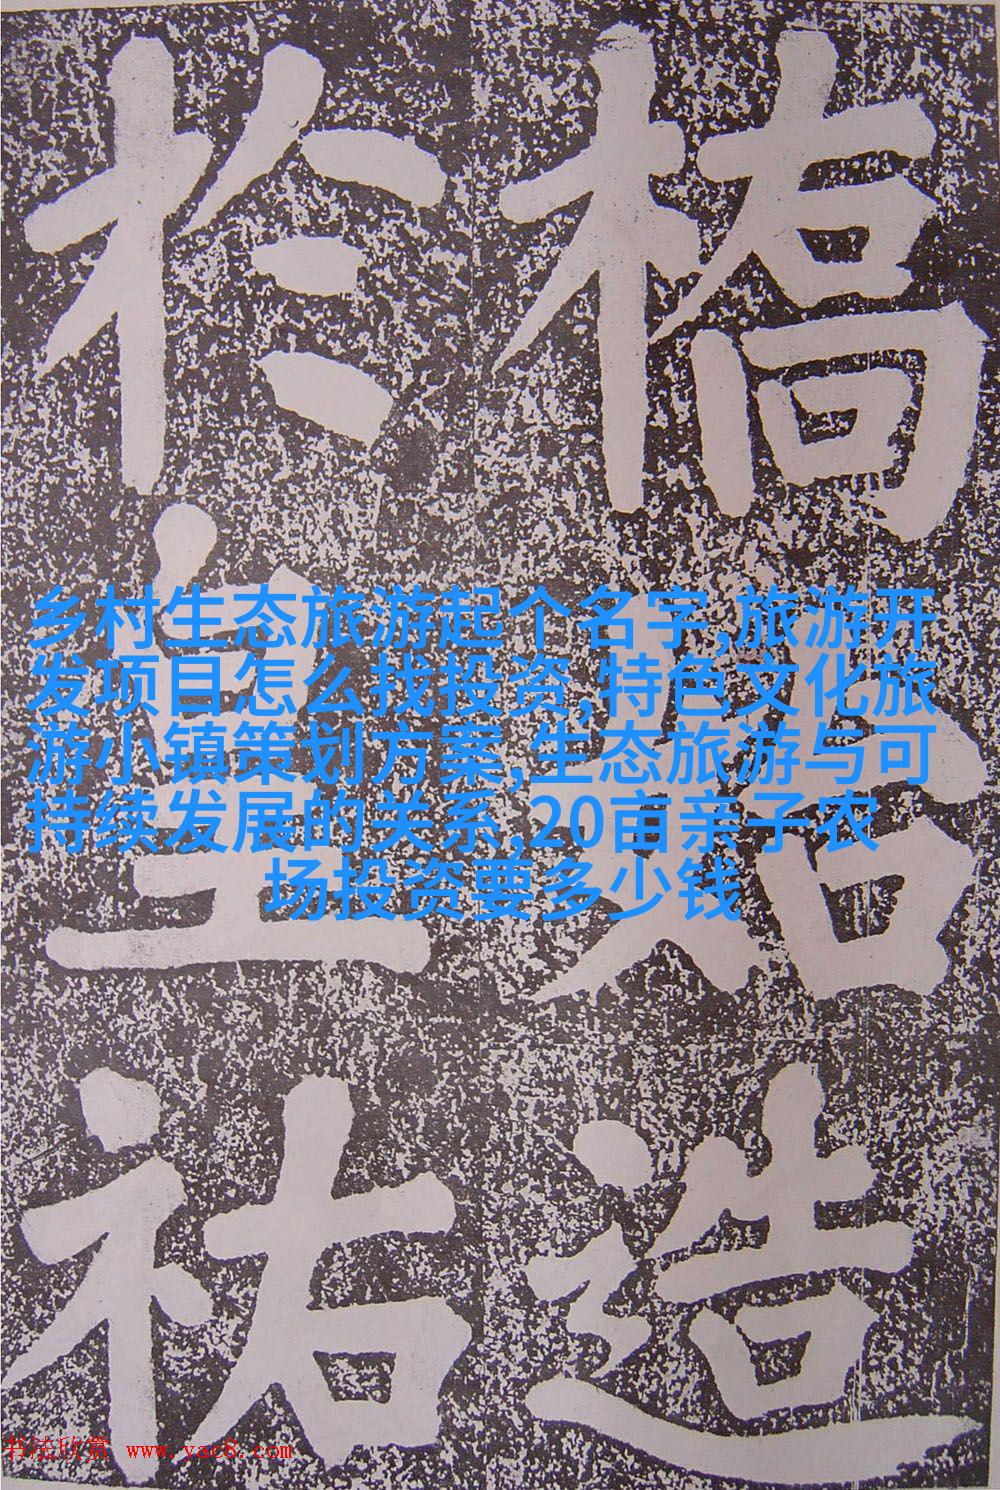 橋始造
於皇祐
乡村生态旅游起个名字,旅游开
发项目怎么找投资,特色文化旅
游小镇策划方案,生态旅游与可
持续发展的关系,20亩亲子农
场投资要多少钱
书法欣赏 www.yac8.com